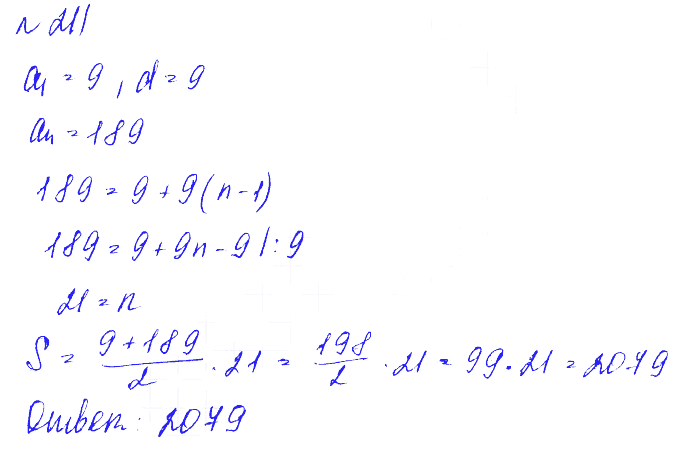 № 211
a₁ = 9, d = 9
aₙ = 189
189 = 9 + 9(n-1)
189 = 9 + 9n - 9 |:9
21 = n
S = (9+189)/2 · 21 = 198/2 · 21 = 99·21 = 2079
Ответ: 2079